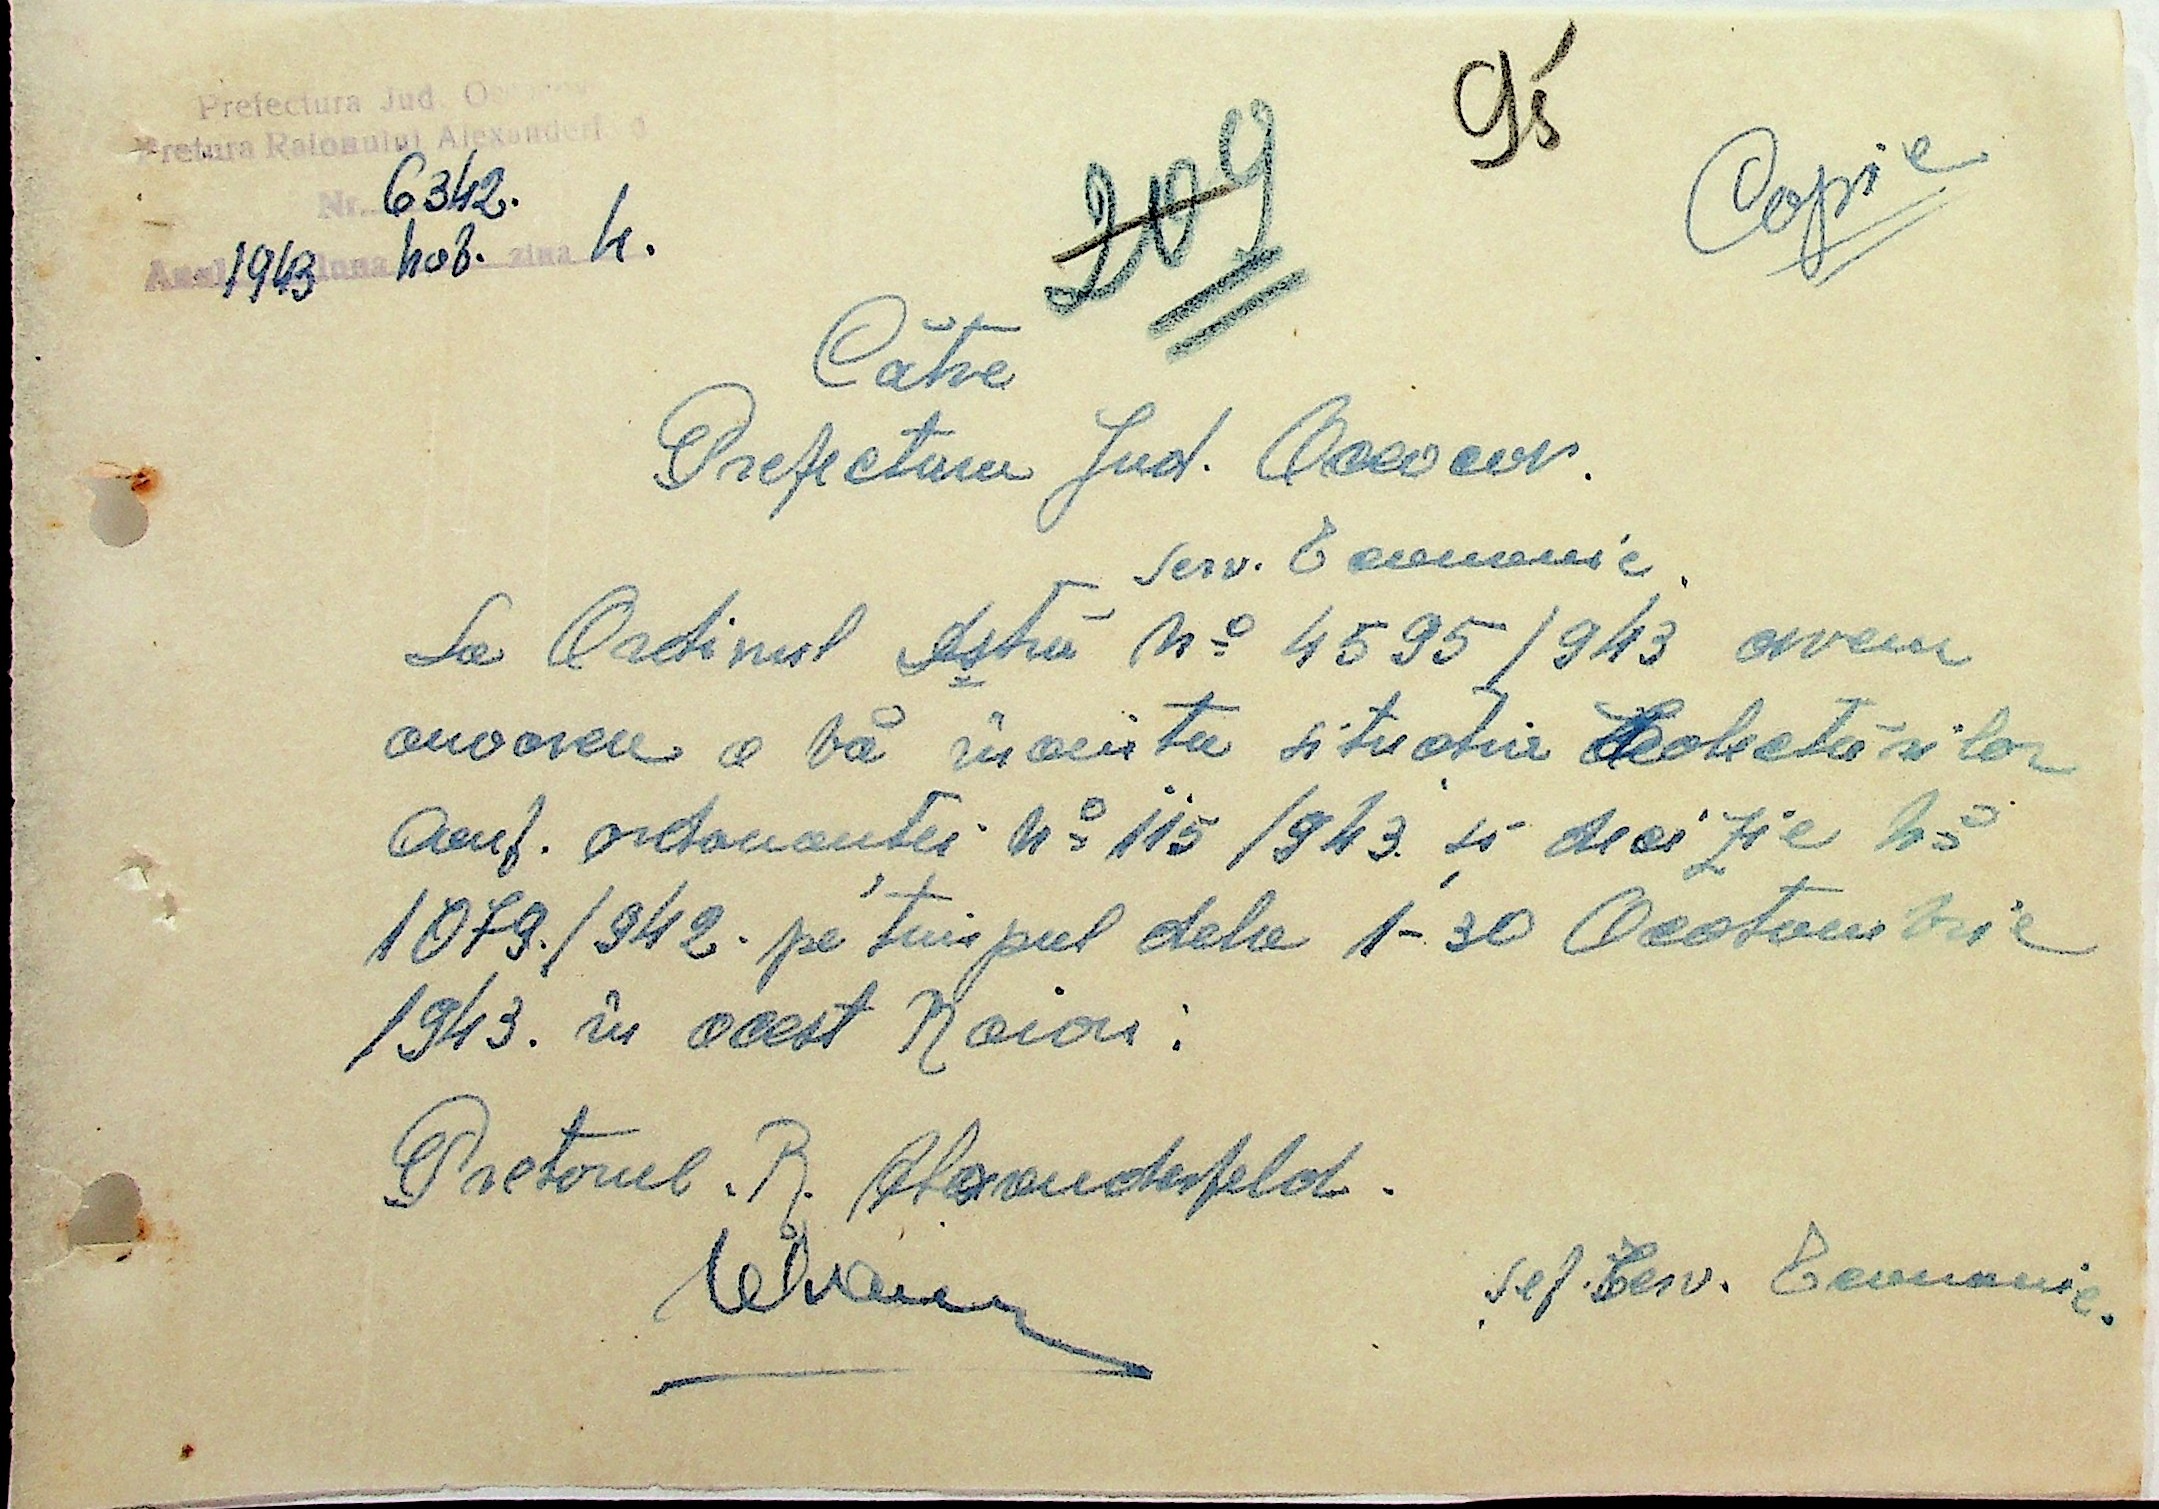 Prefectura Jud.
Pretura Raionului Alexanderf
Nr. 6342.
Anul 1943 luna nov. ziua 4.
209
95
Copie
Către
Prefectura Jud. Oceacov.
Serv. Economic.
La Ordinul dstră No 4595/943 avem
onoarea a vă înainta situația Colectărilor
Conf. ordonanței No 115/943 și decizie No
1079./942. pe timpul dela 1-30 Ocotombrie
1943. în acest Raion:
Pretorul. R. Alexanderfeld.
Șef Serv. Economic.